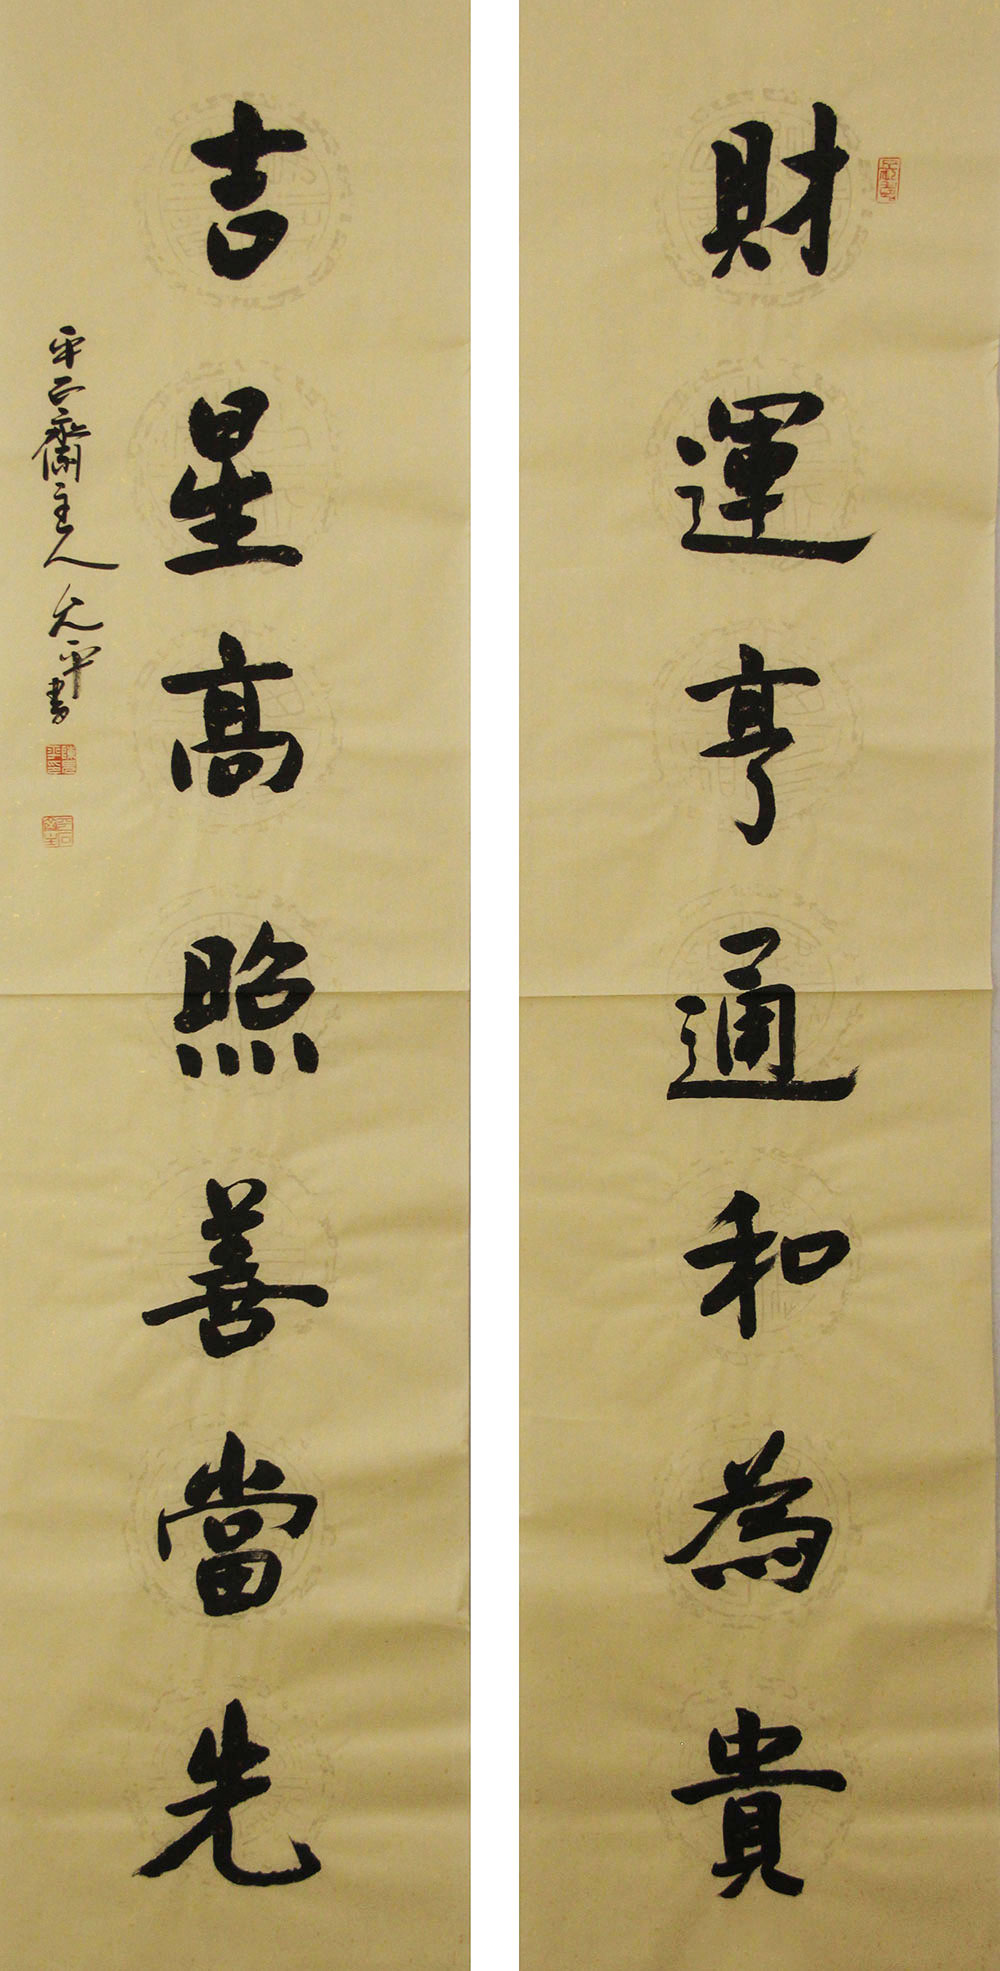 財運亨通和為貴
吉星高照善當先
平正齋主人允平書